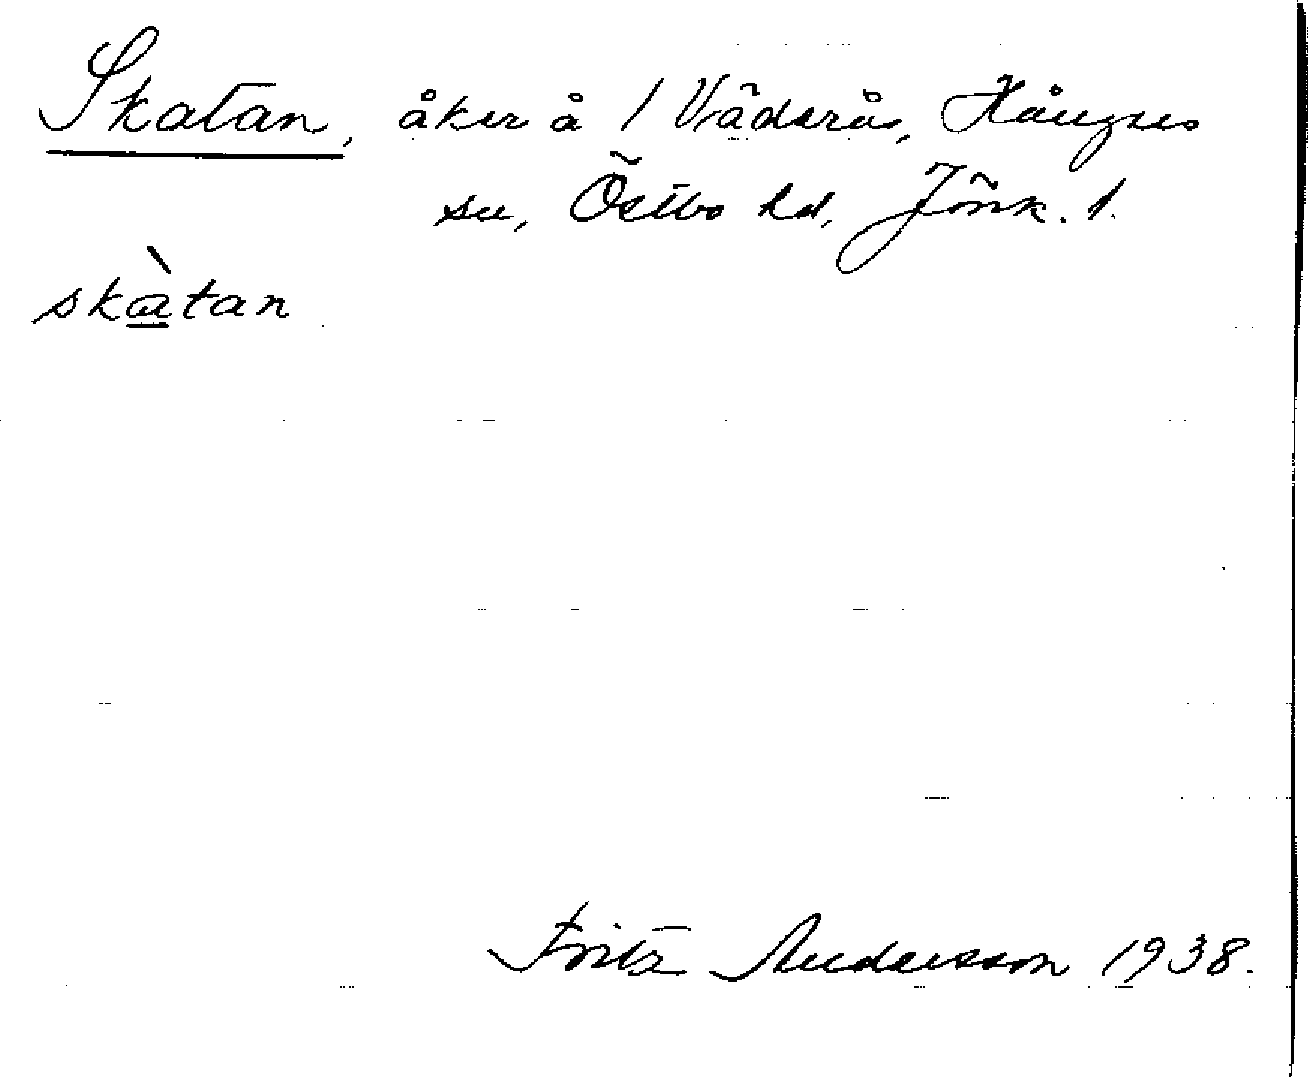 Skatan, åker å 1 Väderås, Hångers
sn, Östbo hd, Jönk. l.
skàtan
Fritz Andersson 1938.